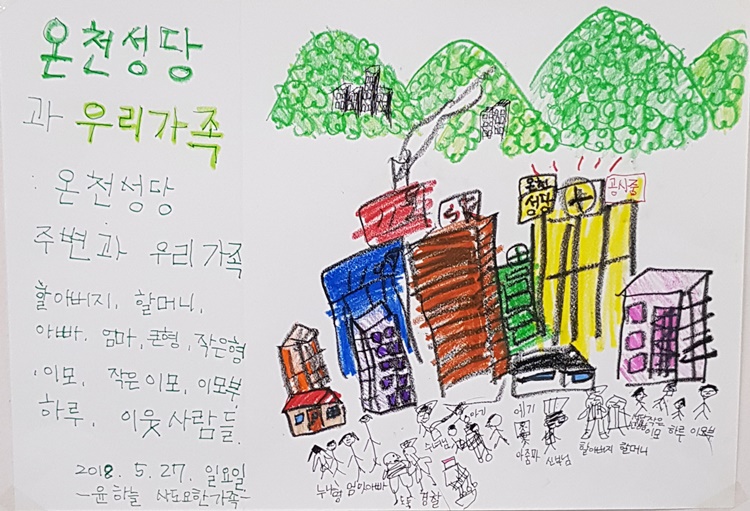 온천성당
과 우리가족
온천성당
주변과 우리가족
할아버지, 할머니,
아빠, 엄마, 큰형, 작은형
이모, 작은이모, 이모부
하루, 이웃사람들.
2018. 5. 27. 일요일
-윤하늘 사도요한가족-
온천
성당
공사중
아기
수녀님
애기
아줌마
신부님
할아버지 할머니
작은
이모 하루 이모부
도둑 경찰